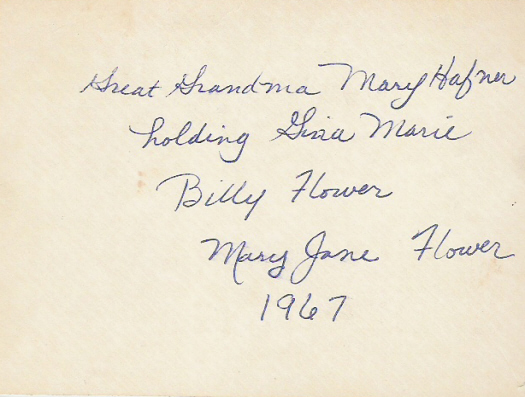 Great Grandma Mary Hafner
holding Gina Marie
Billy Flower
Mary Jane Flower
1967